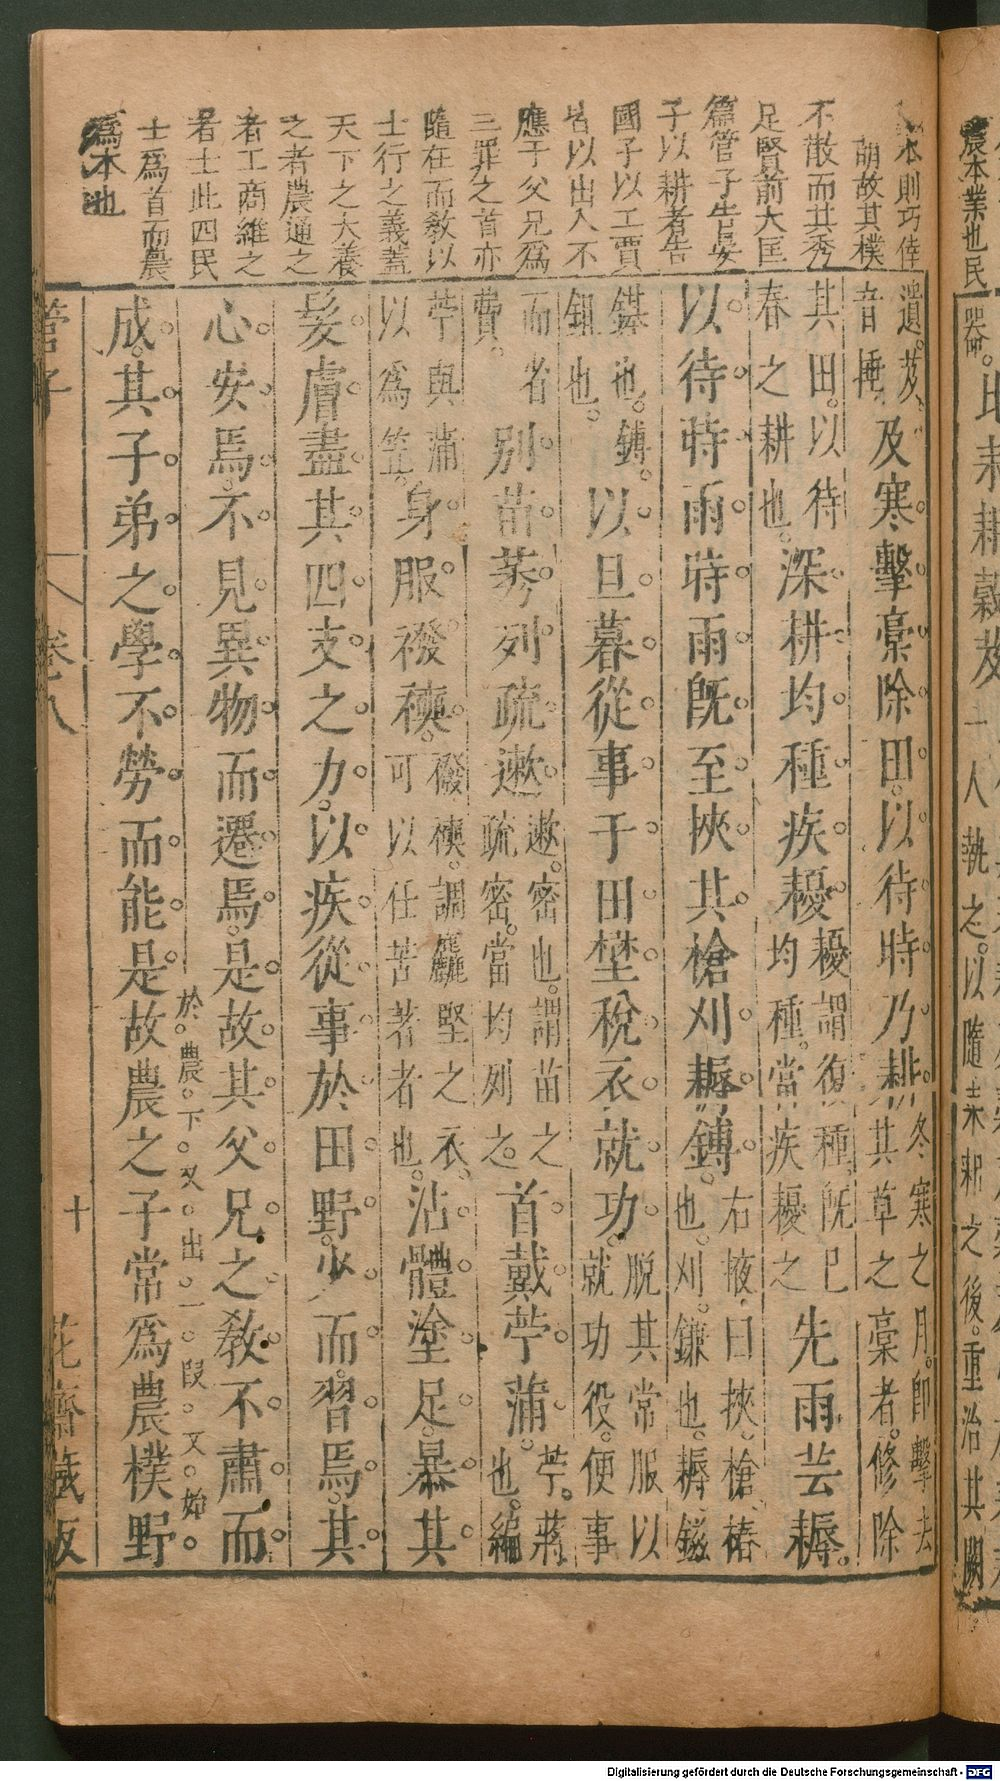 農本業也民
器。比耒耜穀芨一人執之。以隨耒耜之後。重治其闕
本則巧倖
萌故其樸
不散而其秀
足賢前大匡
篇管子告晏
子以耕者告
國子以工賈
皆以出入不
應于父兄爲
三罪之首亦
隨在而教以
士行之義蓋
天下之大養
之者農通之
者工商維之
者士此四民
士爲首而農
爲本也
遺。芟音捶及寒擊槀除田。以待時乃耕。冬寒之月。即擊去其草之槀者。修除
其田。以待春之耕也。深耕均種疾耰耰謂復種。既已均種。當疾耰之先雨芸耨。
以待時雨時雨既至挾其槍刈耨鎛右掖曰挾。槍。樁也。刈。鎌也。耨。鎡
錤也。鎛。鉏也。以旦暮從事于田壄稅衣就功脫其常服以就功役。便事
而省費。別苗莠列疏遬遬。密也。謂苗之疏密。當均列之。首戴苧蒲苧。蔣也。編
苧與蒲以爲笠。身服襏襫。襏襫。謂麤堅之衣。可以任苦著者也。沾體塗足。暴其
髮膚盡其四支之力。以疾從事於田野。少而習焉。其
心安焉。不見異物而遷焉。是故其父兄之教不肅而
於農下又出一段文始
成。其子弟之學不勞而能。是故農之子常爲農樸野
管子 卷八 十 花齋藏版
Digitalisierung gefördert durch die Deutsche Forschungsgemeinschaft - DFG